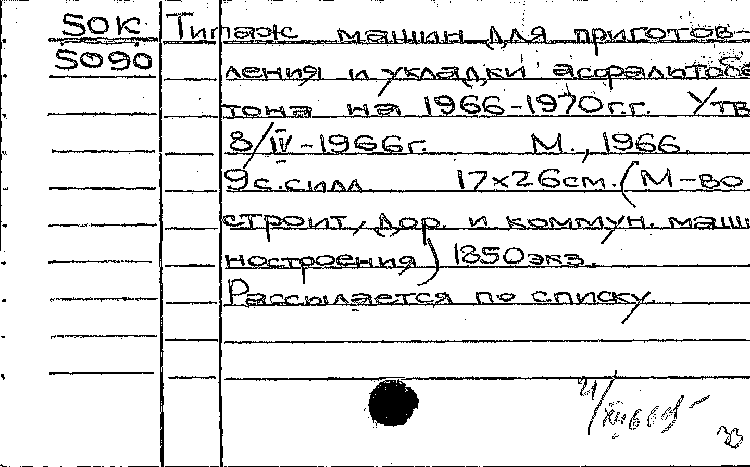 50К Типаж машин для приготов-
5090 ления и укладки асфальтобе
тона на 1966-1970г.г. Утв
8/IV-1966г. М., 1966.
9с.силл. 17x26см. (М-во
строит, дор. и коммун. маши
ностроения) 1850экз.
Рассылается по списку.
21/XII 66
33